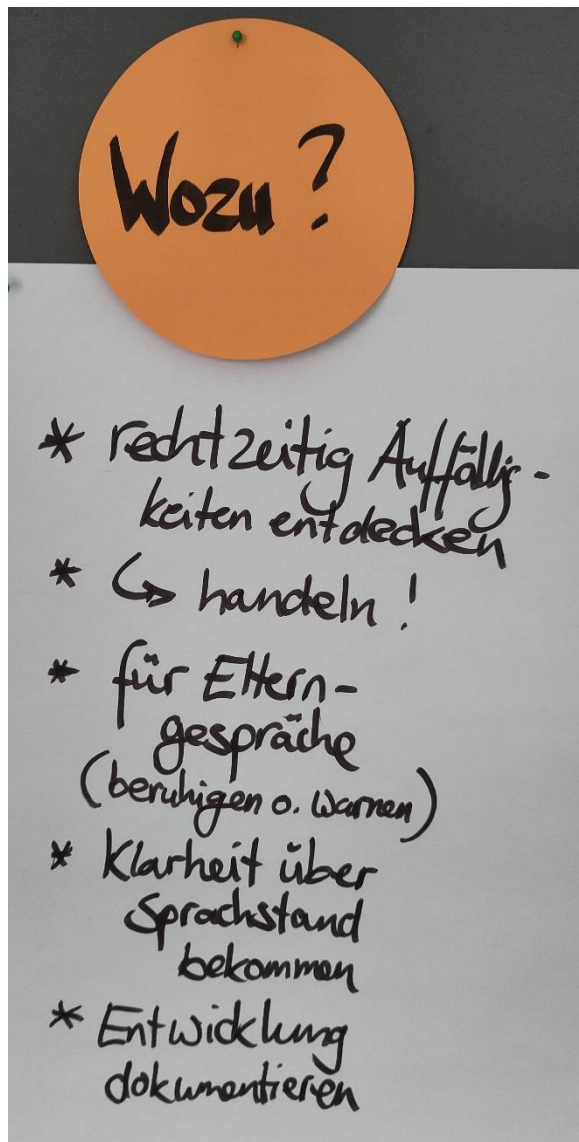 Wozu?
* rechtzeitig Auffällig-
keiten entdecken
* ↳ handeln!
* für Eltern-
gespräche
(beruhigen o. warnen)
* Klarheit über
Sprachstand
bekommen
* Entwicklung
dokumentieren